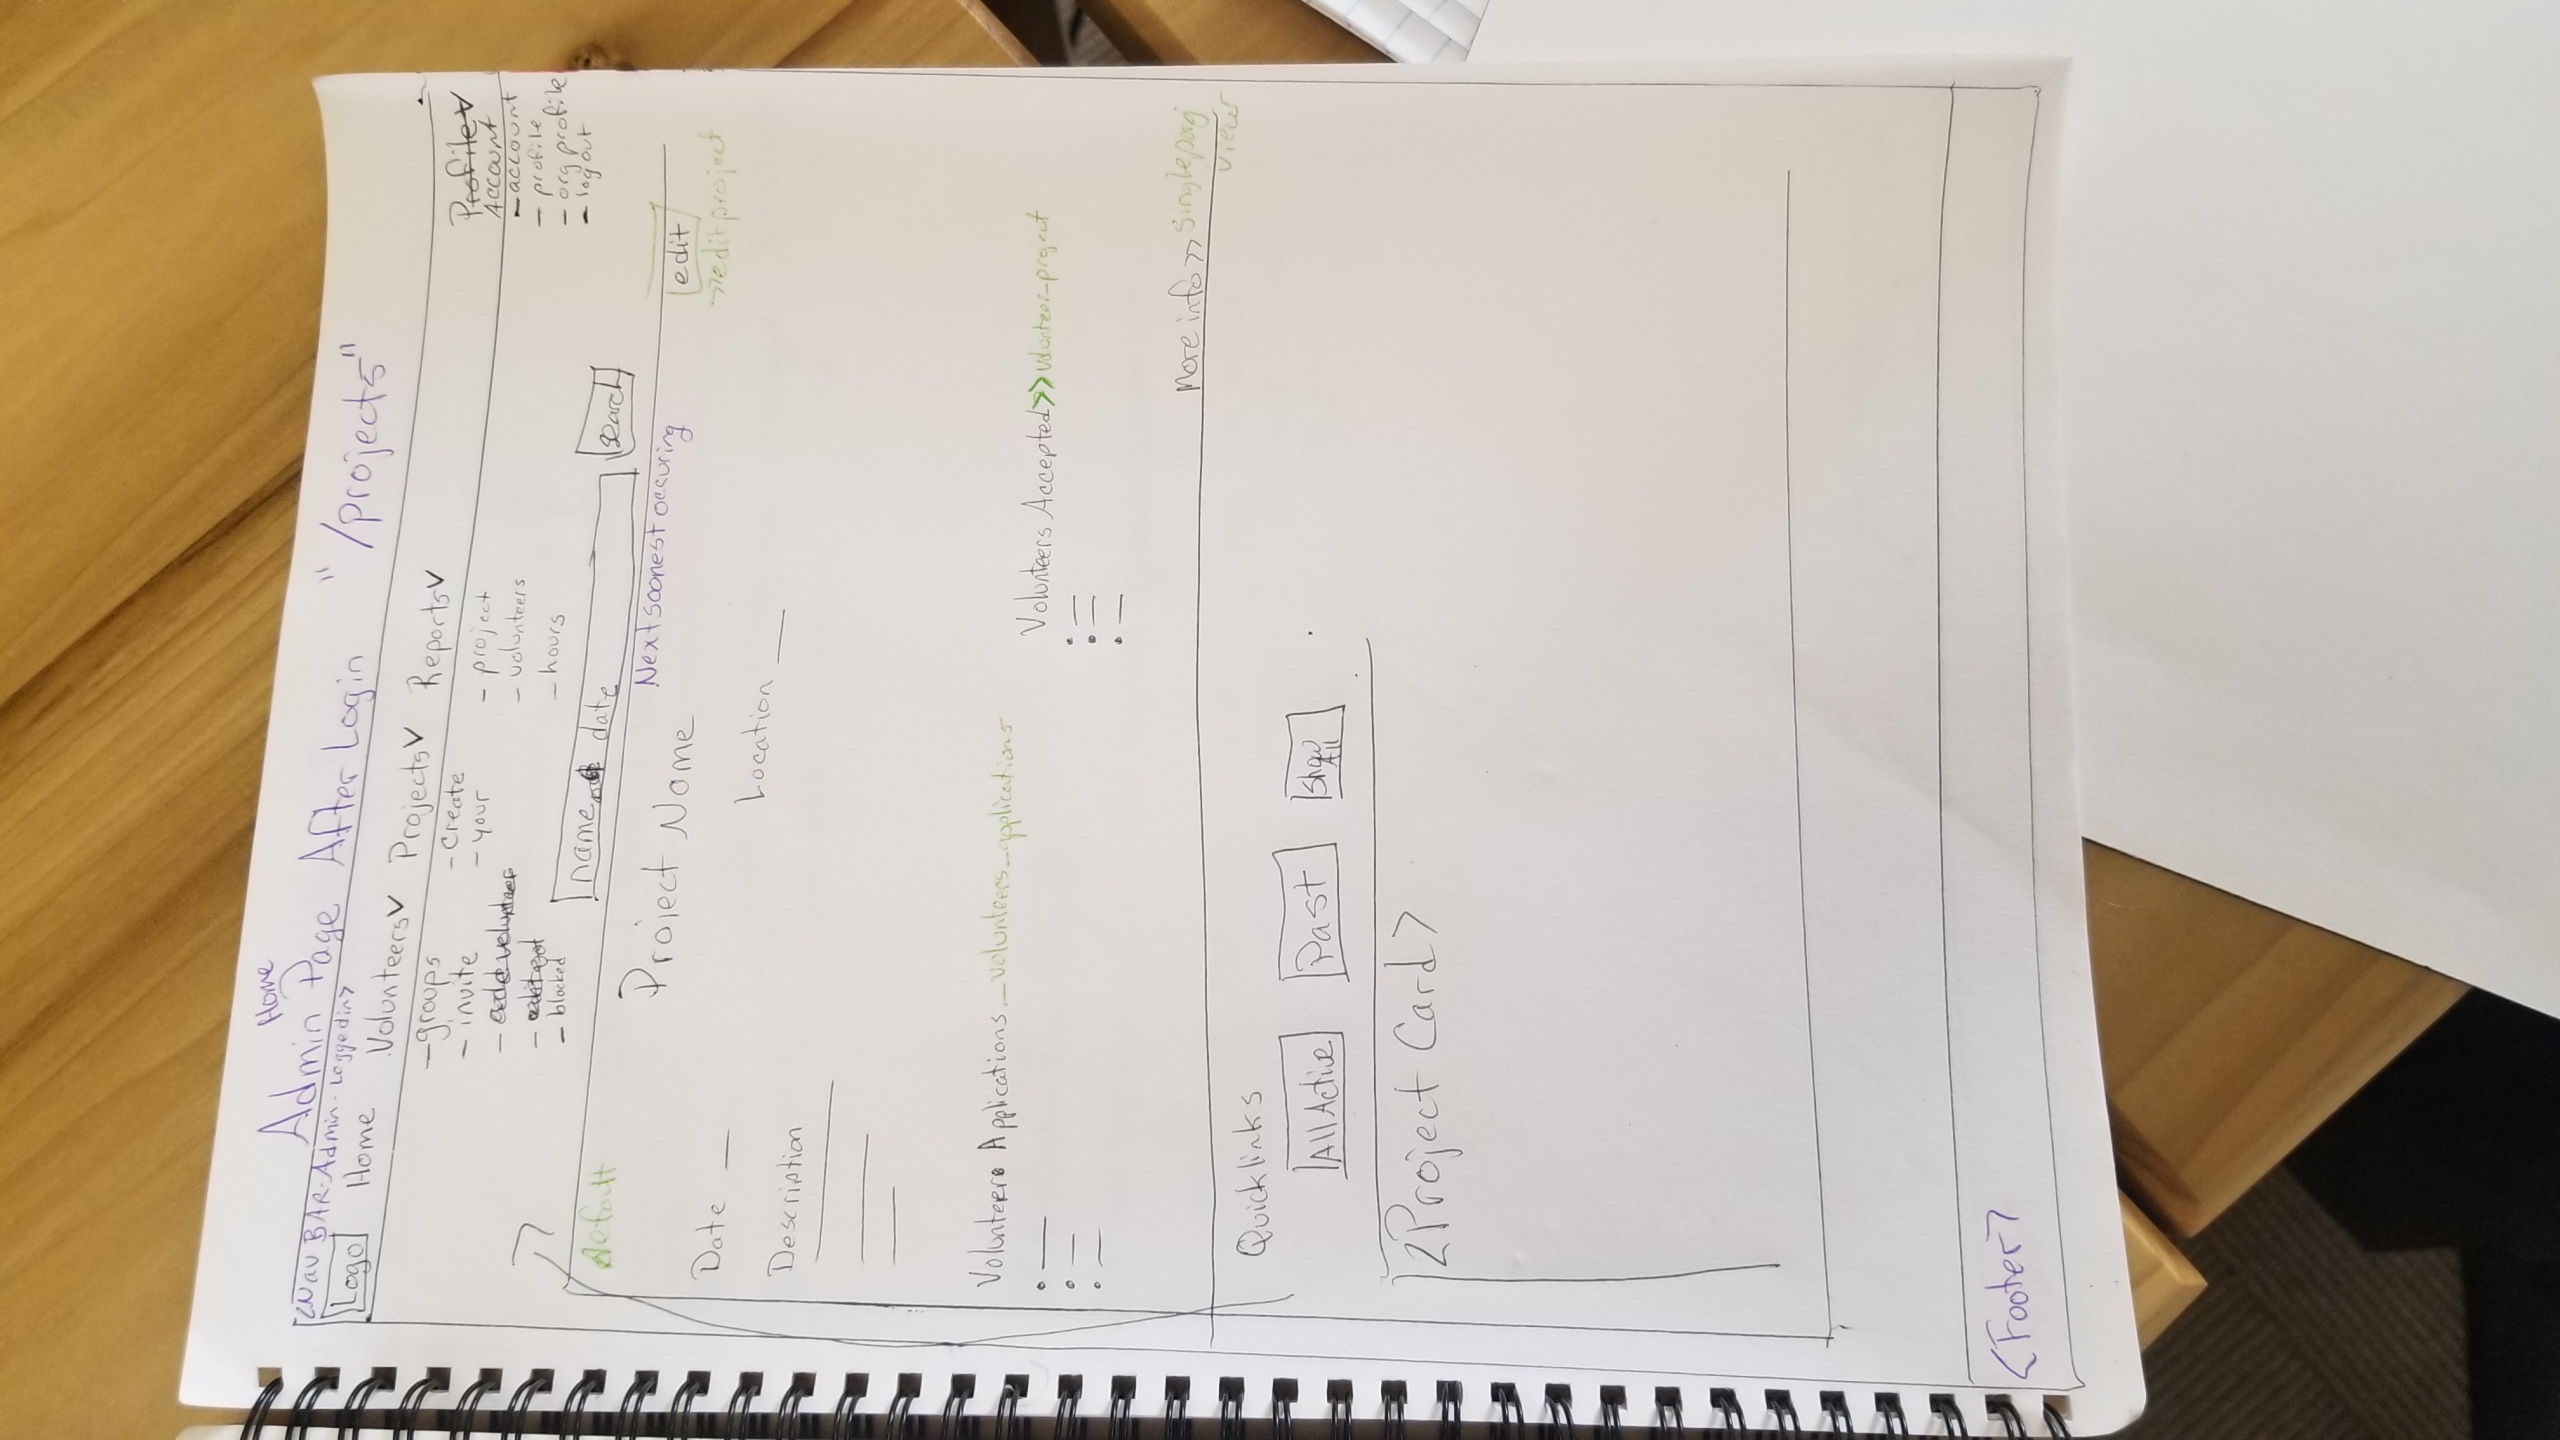 Home
Admin Page After Login "/projects"
<NavBAR-Admin-Loggedin>
Logo Home Volunteers V Projects V Reports V Profile V
Account
- groups
- invite
- add volunteer
- blocked
- create
- your
- project
- volunteers
- hours
- account
- profile
- org profile
- logout
name date search
default
Next soonest occuring
Project Name edit
>>edit project
Date —
Location —
Description
Volunteers Applications - volunteers_applications
Volunteers Accepted >> volunteer_project
More info >> single proj
view
Quick links
All Active Past Show
All
<Project Card>
<Footer>